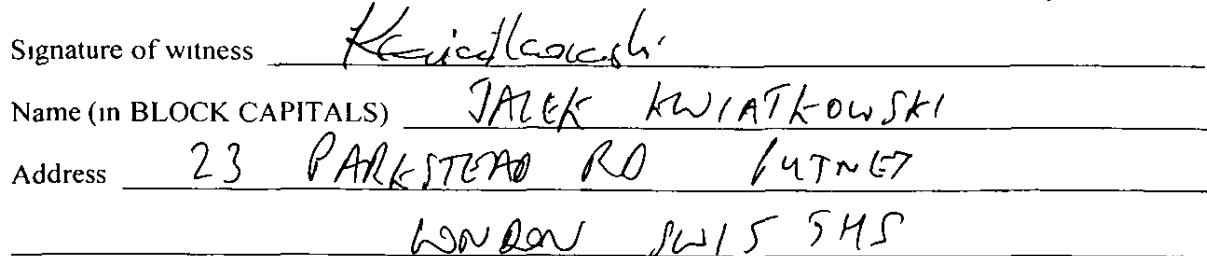 Signature of witness Kwiatkowski
Name (in BLOCK CAPITALS) JACEK KWIATKOWSKI
Address 23 PARKSTEAD RD PUTNEY
LONDON SW15 5HS